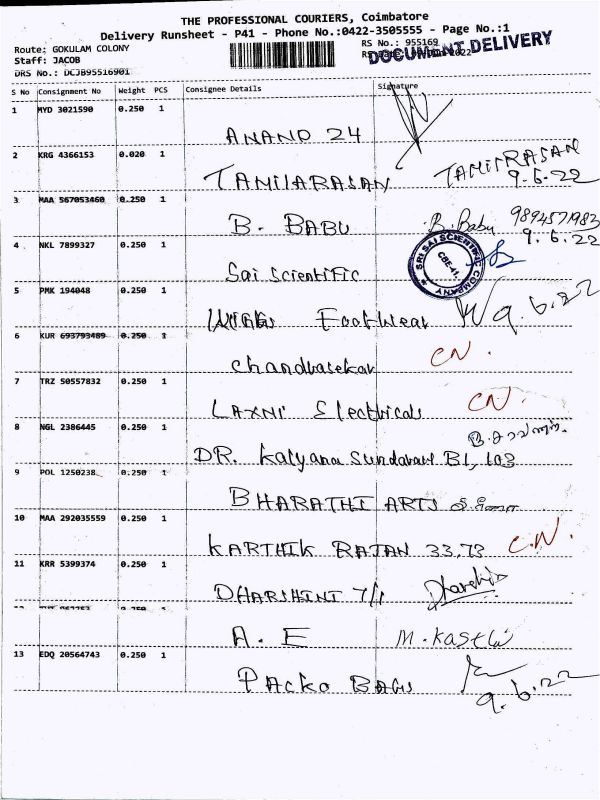 THE PROFESSIONAL COURIERS, Coimbatore
Delivery Runsheet - P41 - Phone No.:0422-3505555 - Page No.:1
Route: GOKULAM COLONY RS No.: 955169
Staff: JACOB 2022
DOCUMENT DELIVERY
DRS No.: DCJB95516901
S No Consignment No Weight PCS Consignee Details Signature
1 MYD 3021590 0.250 1
ANAND 24
2 KRG 4366153 0.020 1
TAMILARASAN TAMILRASAN
9.6.22
3 MAA 567053460 0.250 1
B. BABU B. Babu 9894571983
9.6.22
4 NKL 7899327 0.250 1
Sai Scientific SRI SAI SCIENTIFIC COMPANY CBE-41.
5 PMK 194048 0.250 1
FootWear 9.6.22
6 KUR 693793489 0.250 1
Chandrasekar CN.
7 TRZ 50557832 0.250 1
LAXNI Electricals CN.
8 NGL 2386445 0.250 1
DR. Kalyana Sundaram B1, 103
9 POL 1250238 0.250 1
BHARATHI ARTS
10 MAA 292035559 0.250 1
KARTHIK RAJAN 33.73 C.N.
11 KRR 5399374 0.250 1
DHARSHINI 7/1 Dharshini
A. E M. Kasthi
13 EDQ 20564743 0.250 1
PACKO BAGS
9.6.22